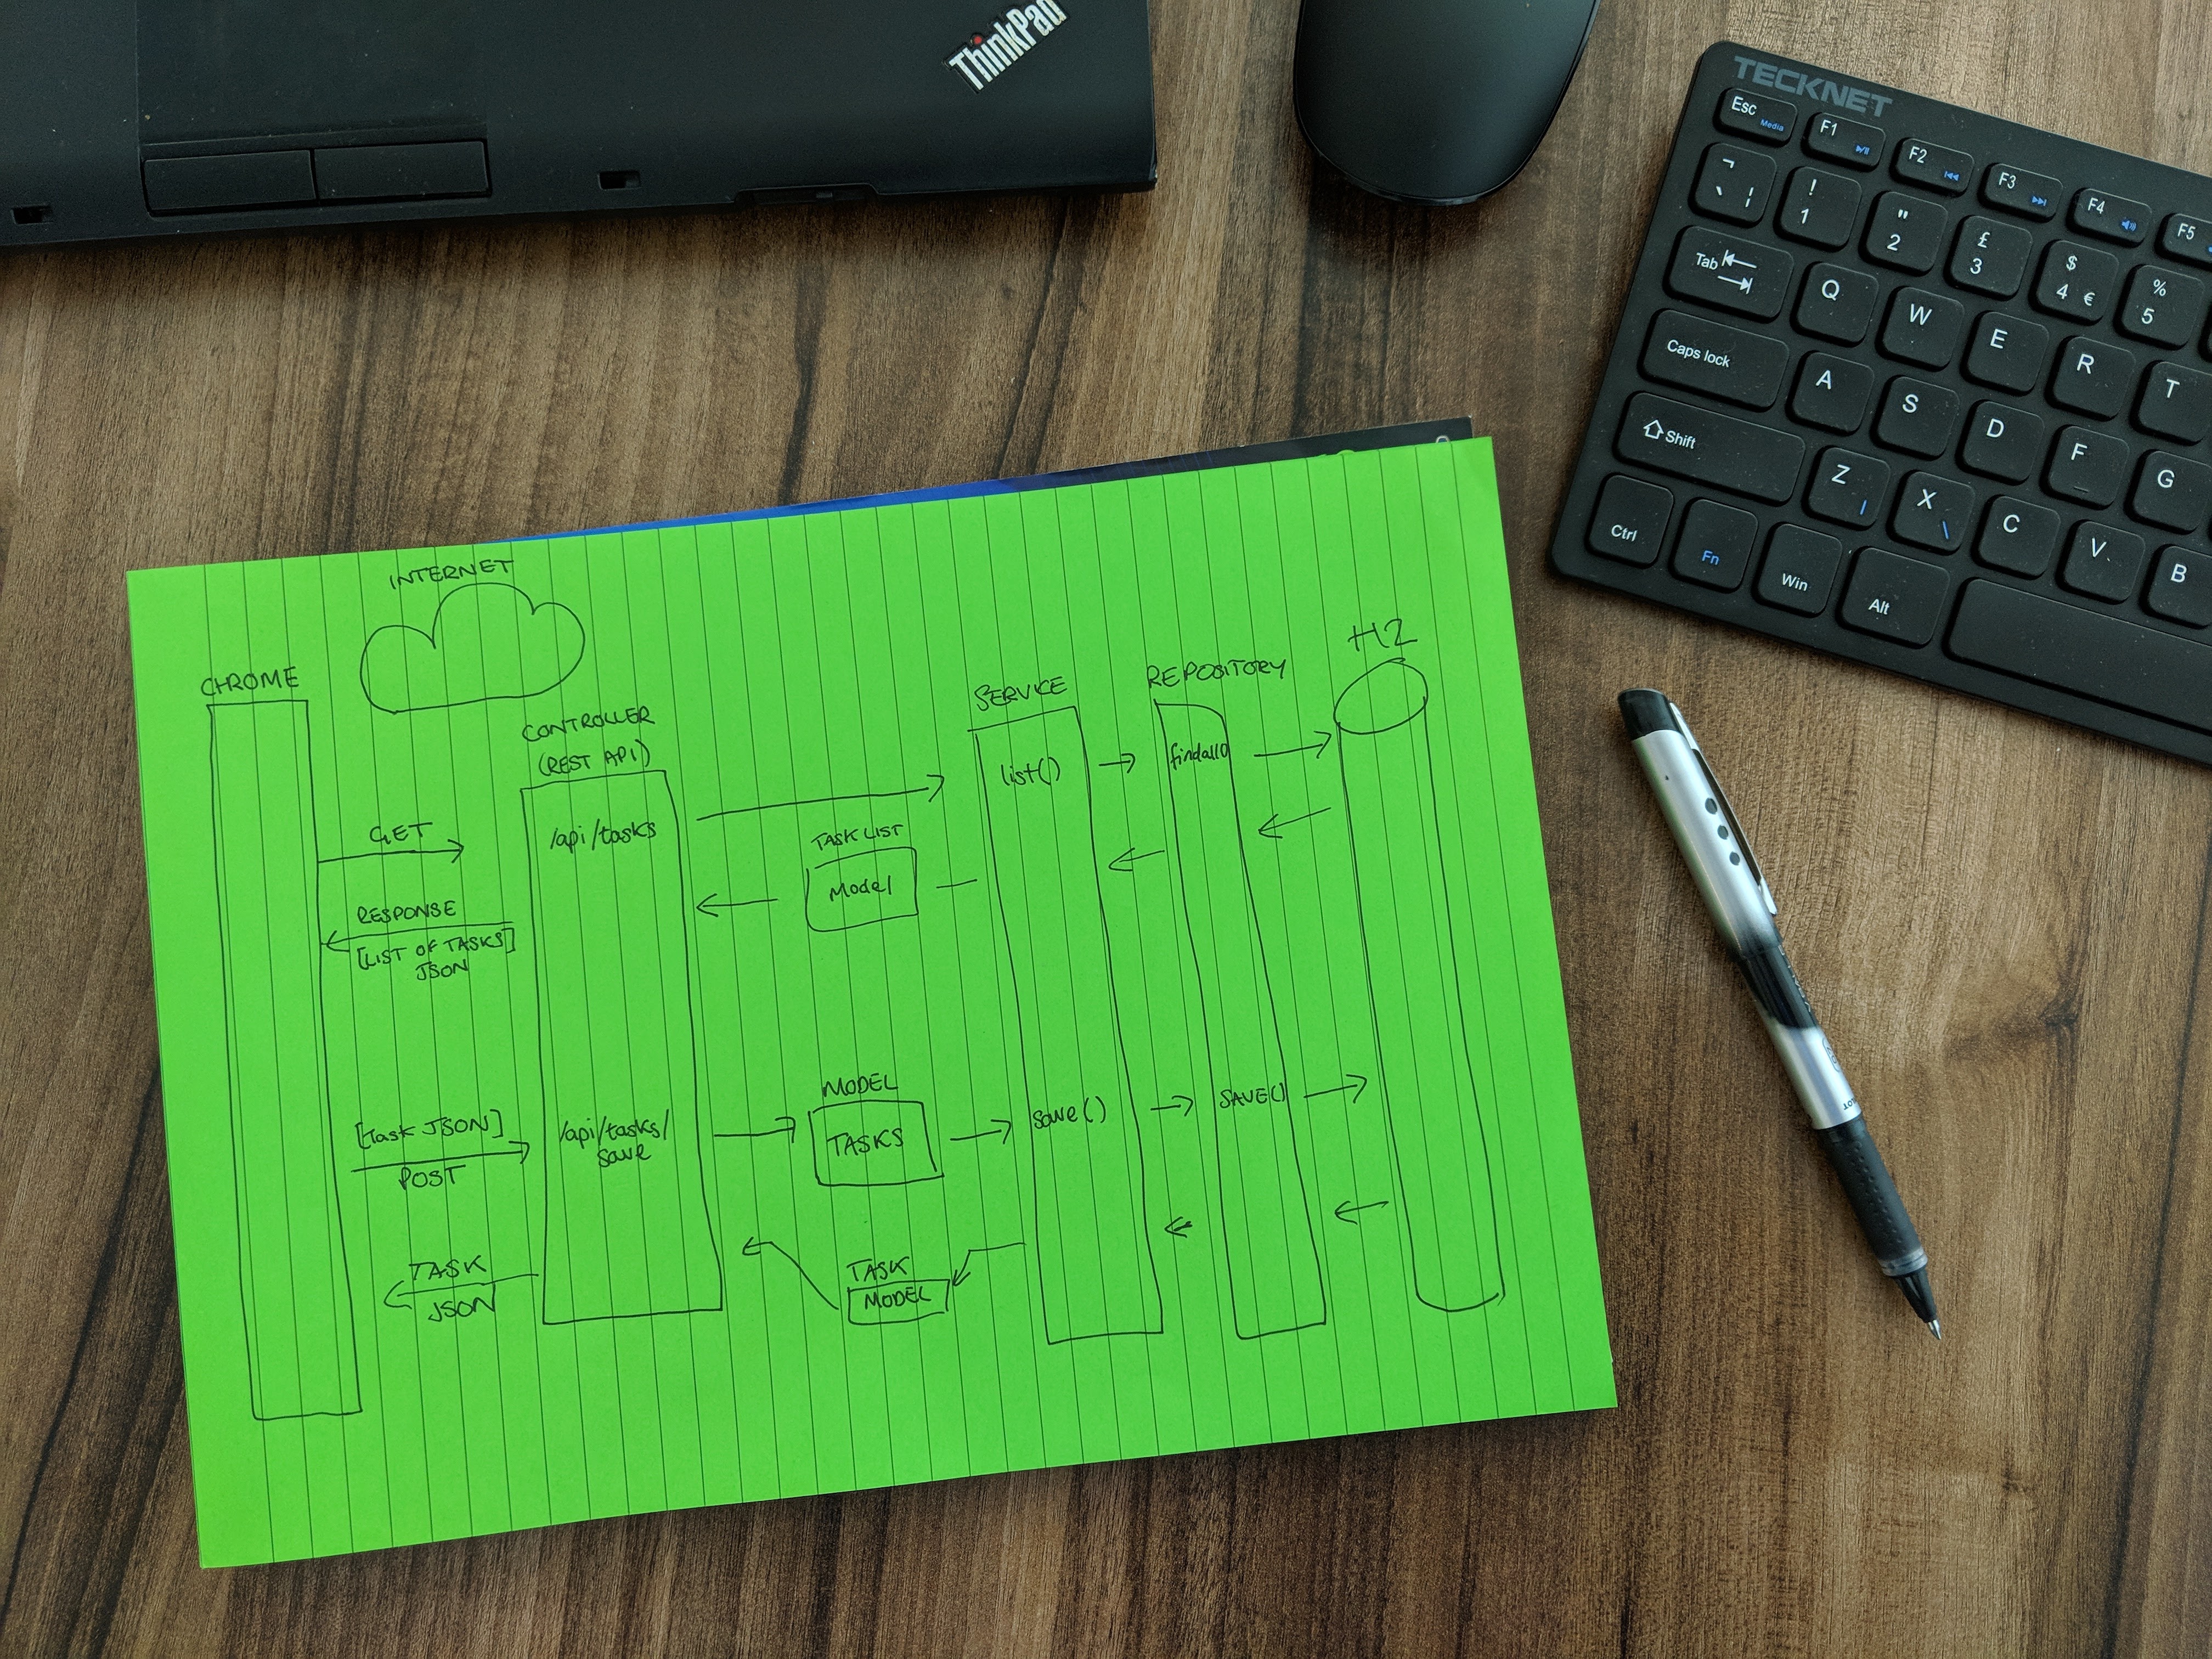 ThinkPad
TECKNET
Esc Media
F1
F2
F3
F4
F5
¬
` ¦
!
1
"
2
£
3
$
4 €
%
5
Tab
Q
W
E
R
T
Caps lock
A
S
D
F
G
Shift
Z
X
C
V
B
Ctrl
Fn
Win
Alt
INTERNET
CHROME
CONTROLLER
(REST API)
SERVICE
REPOSITORY
H2
GET
/api/tasks
list()
findall()
TASK LIST
Model
RESPONSE
[LIST OF TASKS]
JSON
[Task JSON]
POST
/api/tasks/
save
MODEL
TASKS
save()
SAVE()
TASK
JSON
TASK
MODEL